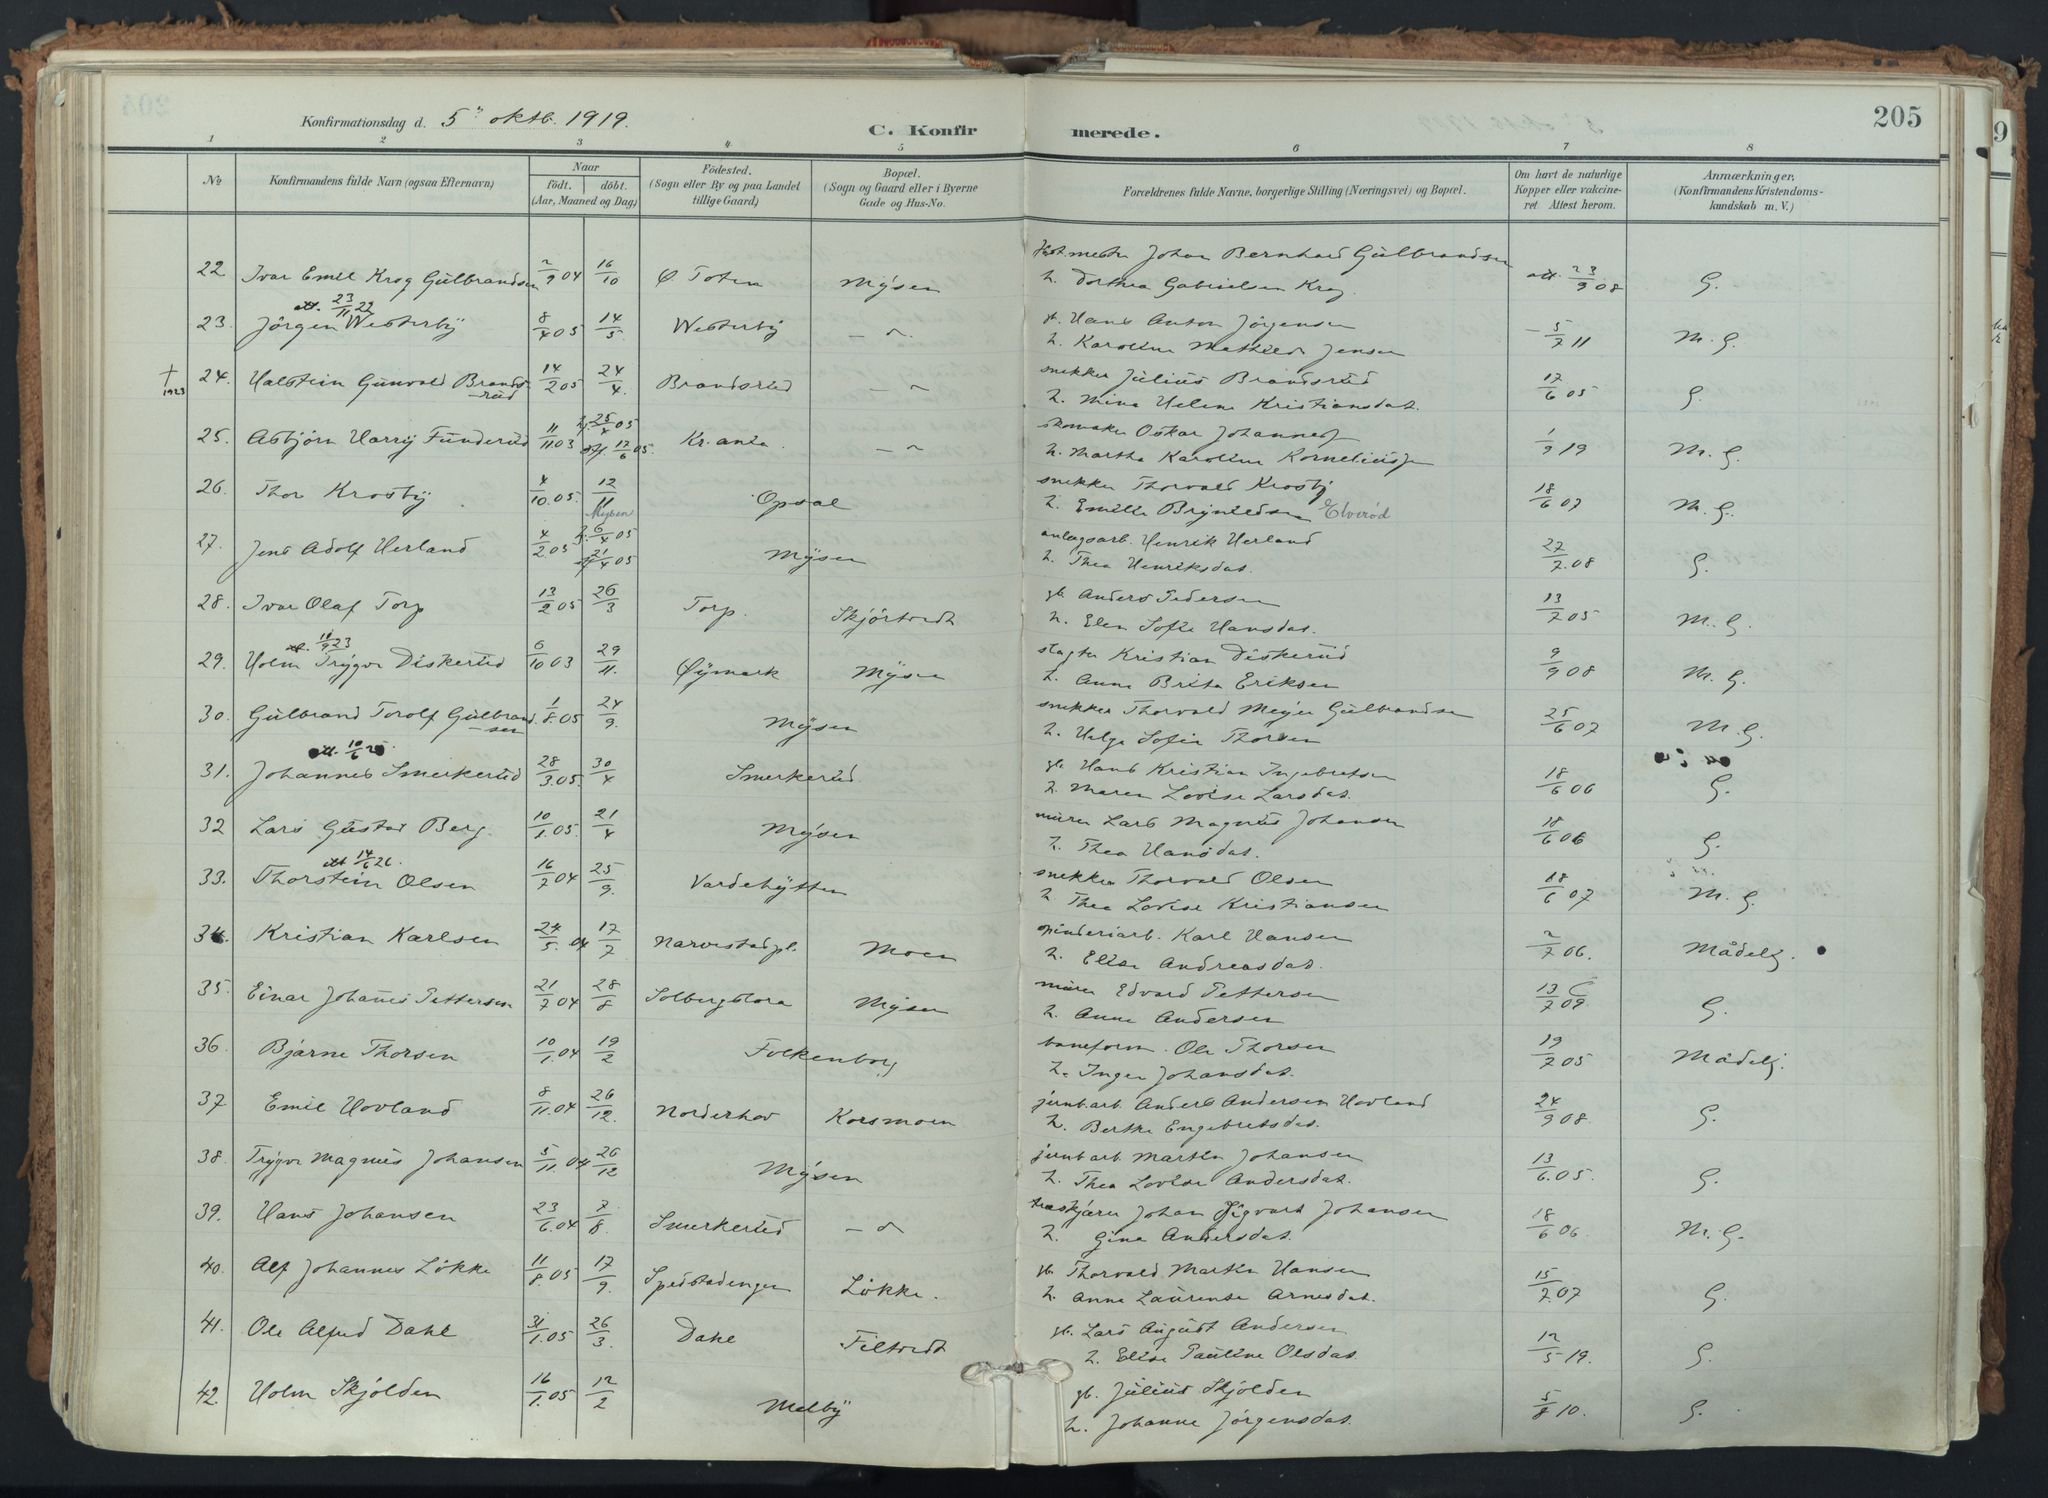 205
Konfirmationsdag d. 5 oktb. 1919.
C. Konfirmerede.
1 2 3 4 5 6 7 8
No
Konfirmandens fulde Navn (ogsaa Efternavn)
Naar
födt. döbt.
(Aar, Maaned og Dag)
Födested.
(Sogn eller By og paa Landet
tillige Gaard)
Bopæl.
(Sogn og Gaard eller i Byerne
Gade og Hus-No.
Forældrenes fulde Navne, borgerlige Stilling (Næringsvei) og Bopæl.
Om havt de naturlige
Kopper eller vakcine-
ret Attest herom.
Anmærkninger,
(Konfirmandens Kristendoms-
kundskab m. V.)
22 Ivar Emil Krog Gulbrandsen 2/9 04 16/10 Ø. Toten Mysen Johan Bernhard Gulbrandsen att. 23/9 08 G.
h. Dorthea Gabrielsen Krog
att. 23/11 22
23. Jørgen Westerby 8/4 05 14/5 Westerby gb. Hans Anton Jørgensen - 5/7 11 M. G.
h. Karoline Mathilde Jensen
† 1923 24. Halstein Gunvald Brandsrud 14/2 05 24/4 Brandsrud snekker Julius Brandsrud 17/6 05 G.
h. Mina Helene Kristiansdat.
25. Asbjørn Harry Funderud 11/11 03 25/4 05 17/6 05. Kr.ania. skomaker Oskar Johannes 1/9 19 M. G.
h. Martha Karoline Kornelius
26. Thor Krosby 4/10.05. 12/11 Opsal snekker Thorvald Krosby 18/6 07 M. G.
Mysen h. Emilie Bryntedsen Elverød
27. Jens Adolf Herland 4/2 05 6/4 05 21/4 05 Mysen anlægsarb. Henrik Herland 27/7.08 G.
h. Thea Henriksdat.
28. Ivar Olaf Torp 13/2 05 26/3 Torp. Skjørtvedt gb. Anders Pedersen 13/7 05 M. G.
h. Elen Sofie Hansdat.
29. Holm Trygve Diskerud 6/10 03 29/11. Øymark Mysen slagter Kristian Diskerud 9/9 08 M. G.
h. Anna Brita Eriksen
30. Gulbrand Torolf Gulbrandsen 1/8.05 24/9. Mysen snekker Thorvald Meyer Gulbrandsen 25/6 07 M. G.
h. Helga Sofie Thorsen
att. 10/6 25.
31. Johannes Smerkerud 28/3.05. 30/4 Smerkerud gb. Hans Kristian Ingebretsen 18/6 06 G.
h. Maren Lovise Larsdat.
32 Lars Gustav Berg. 10/1.05. 21/4 Mysen murer Lars Magnus Johansen 18/6 06 G.
h. Thea Hansdat.
att 14/6 26.
33. Thorstein Olsen 16/7 04 25/9. Vardehytten snekker Thorvald Olsen 18/6 07 M. G.
h. Thea Lovise Kristiansen
34. Kristian Karlsen 24/5. 04 17/7 Narvestadpl. Moen spinderiarb. Karl Hansen 2/7 06. Mådelg.
h. Elise Andreasdat.
35. Einar Johanes Pettersen 21/7 04 28/8 Mysen murer Edvard Pettersen 13/7 09. G.
h. Anne Andersen
36. Bjarne Thorsen 10/1.04 19/2 Folkenborg baneform. Ole Thorsen 19/7 05 Mådelg.
h. Inger Johansdat.
37 Emil Hovland 8/11.04 26/12. Norderhov Korsmoen jernb.arb. Anders Andersen Hovland 24/9 08 G.
h. Berthe Engebretsdat.
38. Trygve Magnus Johansen 5/11.04 26/12 Mysen jernb.arb. Martin Johansen 13/6.05. G.
h. Thea Lovise Andersdat.
39. Hans Johansen 23/6.04 7/8. Smerkerud træskjærer Johan Sigvart Johansen 18/6 06. M. G.
h. Gina Andersdat.
40. Alf Johannes Løkke 11/8.05 17/9. Spedstadengen Løkke. gb. Thorvald Martin Hansen 15/7.07 G.
h. Anne Laurense Arnesdat.
41. Ole Alfred Dahl 31/1.05 26/3. Dahl Filtvedt gb. Lars August Andersen 12/5 19. G.
h. Elise Pauline Olsdat.
42. Holm Skjolden 16/1.05 12/2 Melby gb. Julius Skjolden 5/8 10. G.
h. Johanne Jørgensdat.